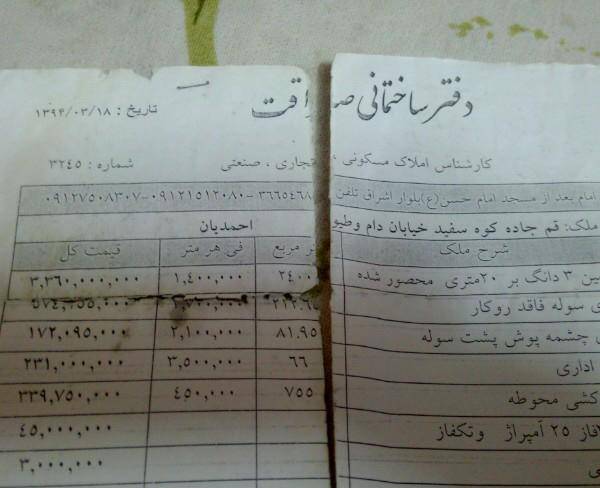 دفتر ساختمانی صداقت
تاریخ : ۱۳۹۴/۰۳/۱۸
کارشناس املاک مسکونی ، تجاری ، صنعتی
شماره : ۳۲۴۵
امام بعد از مسجد امام حسن(ع)بلوار اشراق تلفن ۳۶۶۵۴۶۸ -۰۹۱۲۱۵۱۲۰۸۰-۰۹۱۲۷۵۰۸۳۰۷
ملک: قم جاده کوه سفید خیابان دام وطیو احمدیان
شرح ملک متر مربع فی هر متر قیمت کل
۳ دانگ بر ۲۰متری محصور شده ۲۴۰۰ ۱,۴۰۰,۰۰۰ ۳,۳۶۰,۰۰۰,۰۰۰
سوله فاقد روکار
چشمه پوش پشت سوله ۸۱.۹۵ ۲,۱۰۰,۰۰۰ ۱۷۲,۰۹۵,۰۰۰
اداری ۶۶ ۳,۵۰۰,۰۰۰ ۲۳۱,۰۰۰,۰۰۰
کشی محوطه ۷۵۵ ۴۵۰,۰۰۰ ۳۳۹,۷۵۰,۰۰۰
فاز ۲۵ آمپراژ وتکفاز ۴۵,۰۰۰,۰۰۰
۳,۰۰۰,۰۰۰